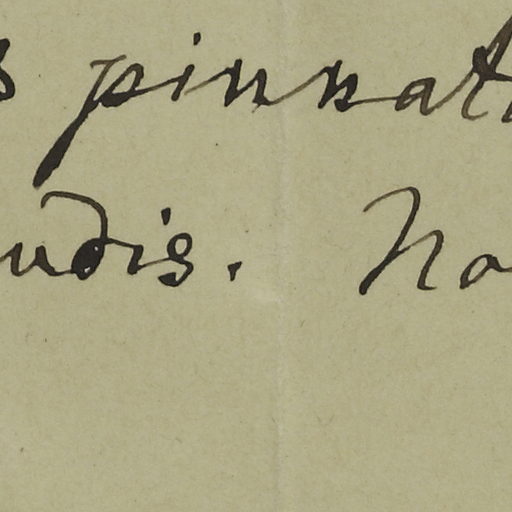 s pinnat
udis. No